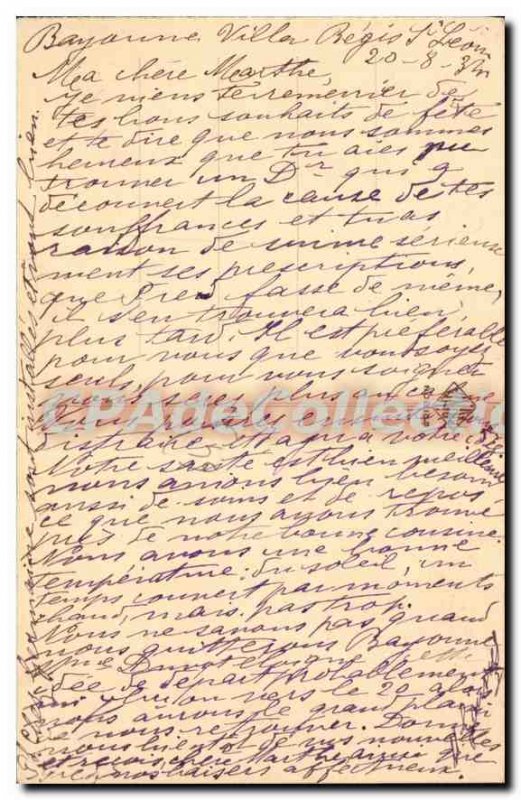 Bayonne Villa Régis St Léon
20-8-34
Ma chère Marthe,
Je viens te remercier de
tes bons souhaits de fête
et te dire que nous sommes
heureux que tu aies pu
trouver un Dr qui a
découvert la cause de tes
souffrances et tu as
raison de suivre sérieuse
ment ses prescriptions,
que Fred fasse de même,
il s'en trouvera bien,
plus tard. Il est préférable
pour vous que vous soyez
seuls pour vous soigner
vous serez plus
CPAdeCollection
distraire
Notre santé est bien meilleure
nous avions bien besoin
aussi de soins et de repos
ce que nous avons trouvé
près de notre bonne cousine.
Nous avons une bonne
température: du soleil, un
temps couvert par moments
chaud, mais pas trop.
Nous ne savons pas quand
nous quitterons Bayonne
idée de départ probablement
vers le 29 alors
nous aurons le grand plaisir
de nous retrouver. Donne
nous bientôt de vos nouvelles
et reçois chère Marthe ainsi que
nos baisers affectueux.
sont installés et vont bien.